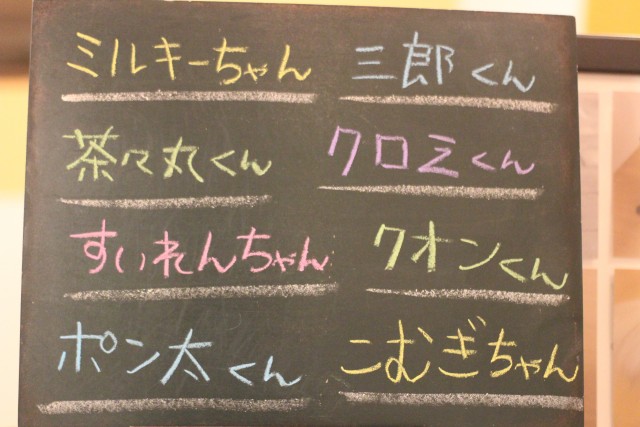 ミルキーちゃん
三郎くん
茶々丸くん
クロミくん
すいれんちゃん
クオンくん
ポン太くん
こむぎちゃん